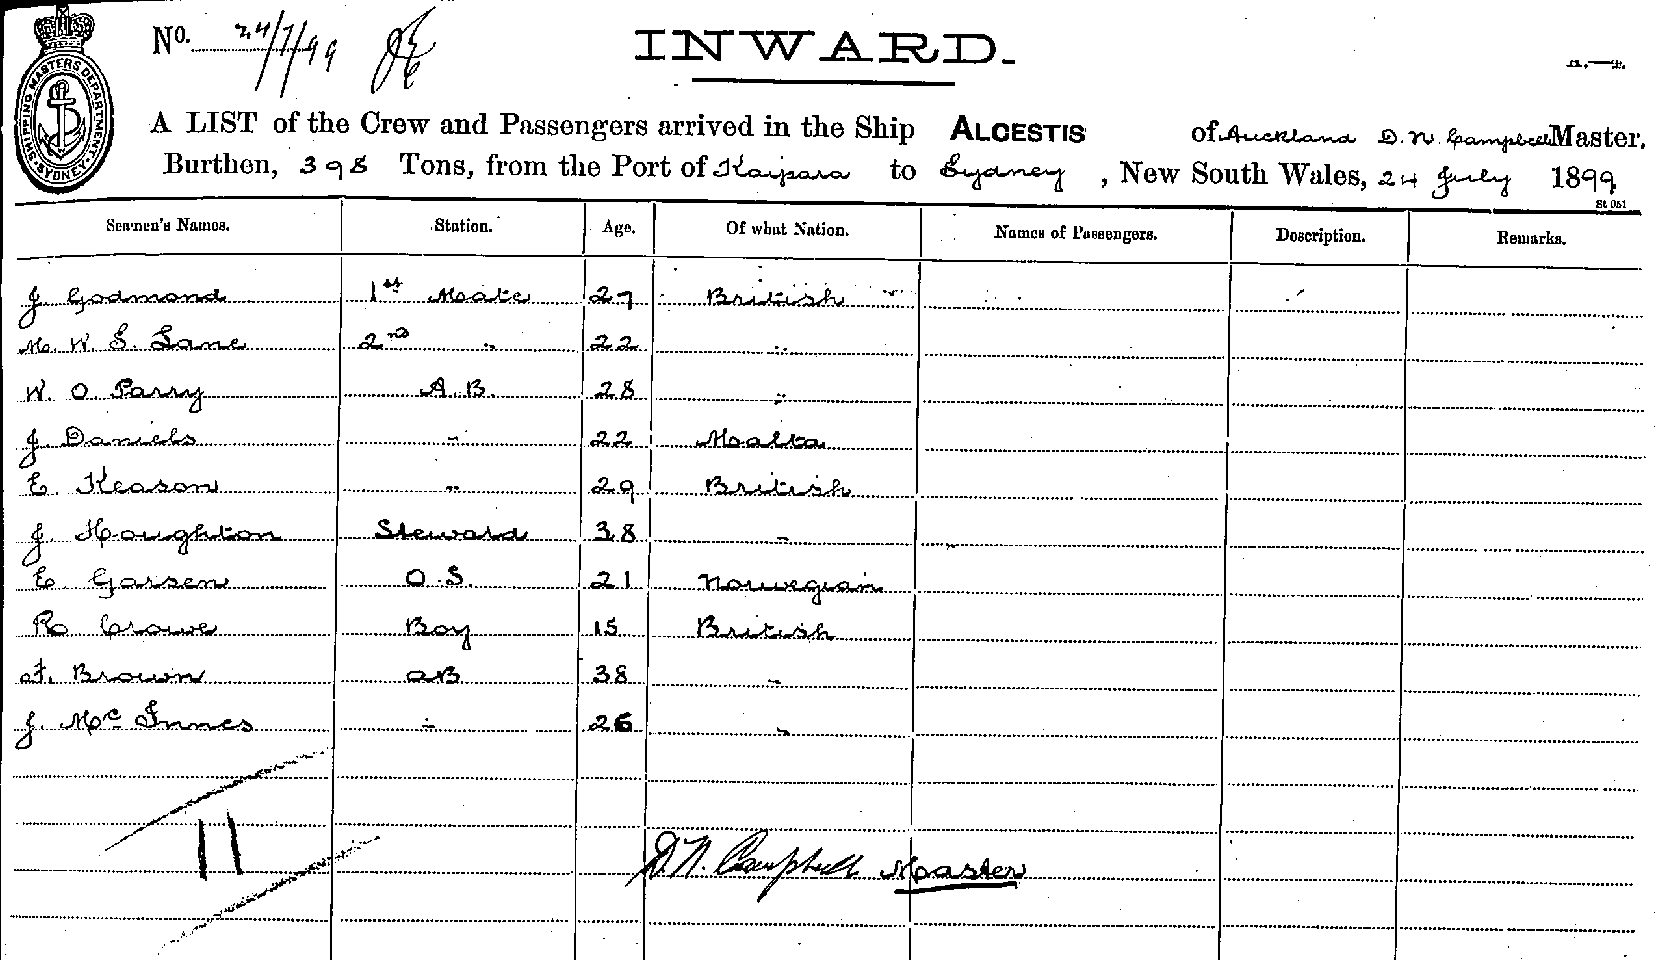 No. 24/7/99
INWARD.
SHIPPING MASTERS DEPARTMENT SYDNEY
A LIST of the Crew and Passengers arrived in the Ship ALCESTIS of Auckland D. N. Campbell Master,
Burthen, 398 Tons, from the Port of Kaipara to Sydney, New South Wales, 24 July 1899
St 051
Seamen's Names. Station. Age. Of what Nation. Names of Passengers. Description. Remarks.
J Godmond 1st Mate 27 British
M. W. S. Lane 22 2nd " "
W. O. Parry A.B. 28 "
J Daniels " 22 Malta
E. Keason " 29 British
J. Houghton Steward 38 "
E. Garsen O.S. 21 Norwegian
R Crowe Boy 15 British
A. Brown AB 38 "
J. McInnes " 26 "
11
D. N. Campbell Master